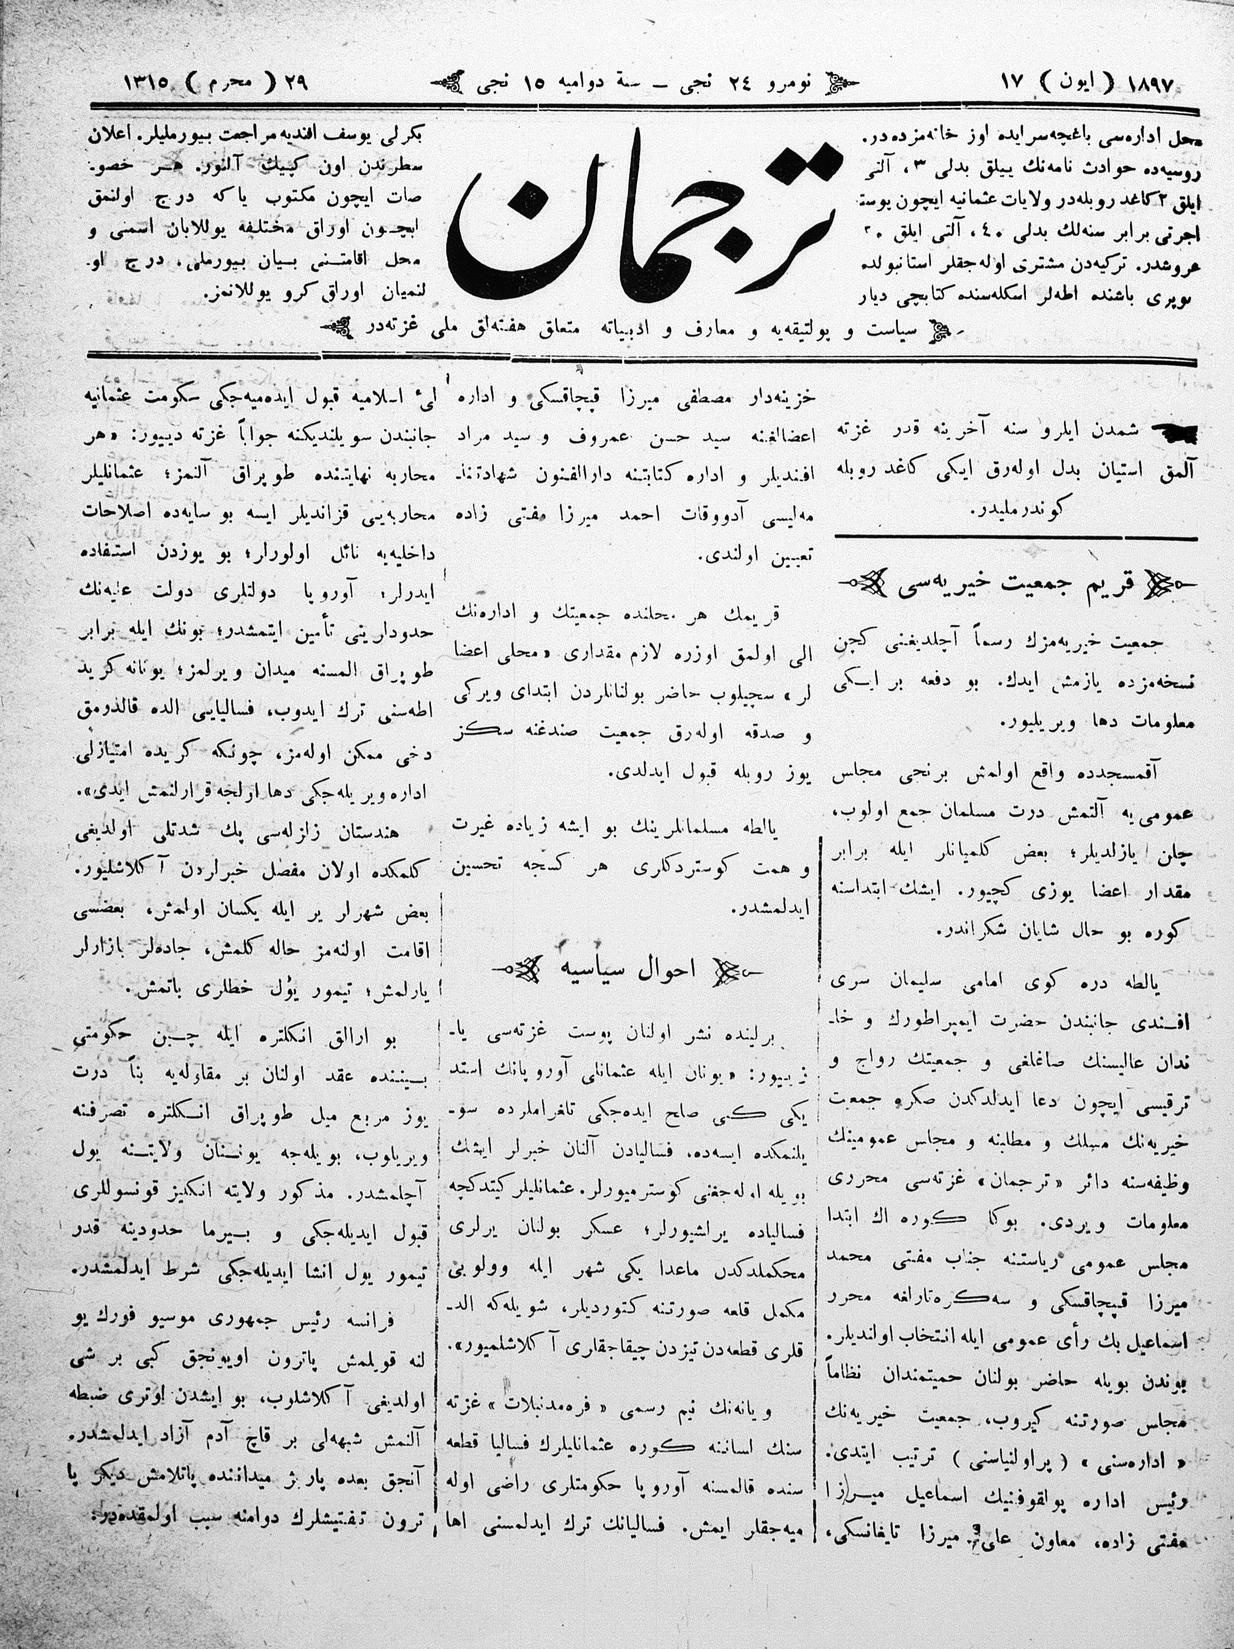 ١٨٩٧ ( ايون ) ١٧
نومرو ٢٤ نجى ــ سنهٔ دواميه ١٥ نجى
٢٩ ( محرم ) ١٣١٥
محل اداره‌سى باغچه‌سرايده اوز خانه‌مزده‌در.
روسيه‌ده حوادث نامه‌نك ييللق بدلى ٣، آلتى
ايلق ٢ كاغد روبله‌در ولايات عثمانيه ايچون پوسته
اجرتى برابر سنه‌لك بدلى ٤٠، آلتى ايلق ٢٠
غروشدر. تركيه‌دن مشترى اوله‌جقلر استانبولده
كوپرى باشنده اطه‌لر اسكله‌سنده كتابچى ديار
ترجمان
بكرلى يوسف افنديه مراجعت بيورمليلر. اعلان
سطرندن اون كپيك آلنور. هـر خصو.
صات ايچون مكتوب ياكه درج اولنمق
ايچـون اوراق مختلفه يوللابان اسمنى و
محل اقامتـنى بـيان بيورملى، درج او.
لنميان اوراق كرو يوللانمز.
سياست و پولتيقه‌يه و معارف و ادبياته متعلق هفته‌لق ملى غزته‌در
شمدن ايلرو سنه آخرينه قدر غزته
آلمق استيان بدل اوله‌رق ايكى كاغد روبله
كوندرمليدر.
قريم جمعيت خيريه‌سى
جمعيت خيريه‌مزك رسماً آچلديغنى كچن
نسخه‌مزده يازمش ايدك. بو دفعه بر ايـكى
معلومات دها ويريليور.
آقمسجدده واقع اولمش برنجى مجلس
عمومى‌يه آلتمش درت مسلمان جمع اولوب،
چلن يازلديلر؛ بعض كلميانلر ايله برابر
مقدار اعضا يوزى كچيور. ايشك ابتداسنه
كوره بو حال شايان شكراندر.
يالطه دره كوى امامى سليمان سرى
افـندى جانبندن حضرت ايمپراطورك و خا۔
ندان عاليسنك صاغلغى و جمعيتك رواج و
ترقيسى ايچون دعا ايدلدكدن صكره جمعيت
خيريه‌نك مسلك و مطلبنه و مجلس عمومينك
وظيفه‌سنه دائر «ترجمان» غزته‌سى محررى
معلومات ويردى. بوكا كـوره اك ابتدا
مجلس عمومى رياستنه جناب مفتى محمد
ميرزا قپچاقسكى و سه‌كره‌تارلغه محرر
اسماعيل بك رأى عمومى ايله انتخاب اولنديلر.
بوندن بويله حاضر بولنان حميتمندان نظاماً
مجلس صورتنه كيروب، جمعيت خيريه‌نك
« اداره‌سنى » ( پراولنياسنى ) ترتيب ايتدى.
رئيس اداره پولقوفنيك اسماعيل ميـرزا
مفتى زاده، معاون على ميرزا تايغانسكى،
خزينه‌دار مصطفى ميرزا قپچاقسكى و اداره
اعضالغنه سيد حسن عمروف و سيد مراد
افنديلر و اداره كتابتنه دارالفنون شهادتنا۔
مه‌ليسى آدووقات احمد ميرزا مفتى زاده
تعيين اولندى.
قريمك هر محلنده جمعيتك و اداره‌نك
الى اولمق اوزره لازم مقدارى « محلى اعضا
لر » سچيلوب حاضر بولنانلردن ابتداى ويركى
و صدقه اوله‌رق جمعيت صندغنه سـكز
يوز روبله قبول ايدلدى.
يالطه مسلمانلرينك بو ايشه زياده غيرت
و همت كوستردكلرى هر كسجه تحسين
ايدلمشدر.
احوال سياسيه
برلينده نشر اولنان پوست غزته‌سى يا۔
زييور: « يونان ايله عثمانلى آوروپانك استد
يكى كـبى صلح ايده‌جكى تلغراملرده سو۔
يلنمكده ايسه‌ده، فساليادن آلنان خبرلر ايشك
بويله اوله‌جغنى كوسترميورلر. عثمانليلر كيتدكچه
فسالياده يراشيورلر؛ عسكر بولنان يرلرى
محكملدكدن ماعدا يكى شهر ايله وولويى
مكمل قلعه صورتنه كتورديلر، شويله‌كه الد۔
قلرى قطعه‌دن تيزدن چيقاجقلرى آكلاشلميور».
ويانه‌نك نيم رسمى « فره‌مدنبلات » غزته
سنك لساننه كـوره عثمانليلرك فساليا قطعه
سنده قالمسنه آوروپا حكومتلرى راضى اوله
ميه‌جقلر ايمش. فساليانك ترك ايدلمسنى اها
لئ اسلاميه قبول ايده‌ميه‌جكى حكومت عثمانيه
جانبندن سويلنديكنه جواباً غزته دييور: « هر
محاربه نهايتنده طوپراق آلنمز؛ عثمانليلر
محاربه‌يى قزانديلر ايسه بو سايه‌ده اصلاحات
داخليه‌يه نائل اولورلر؛ بو يوزدن استفاده
ايدرلر؛ آوروپا دولتلرى دولت عليه‌نك
حدودارينى تأمين ايتمشدر؛ بونك ايله برابر
طوپراق المسنه ميدان ويرلمز؛ يونانه كريد
اطه‌سنى ترك ايدوب، فساليايى الده قالدرمق
دخى ممكن اوله‌مز، چونكه كريده امتيازلى
اداره ويريله‌جكى دها اولجه قرارلنمش ايدى».
هندستان زلزله‌سى پك شدتلى اولديغى
كلمكده اولان مفصل خبرلردن آكلاشليور.
بعض شهرلر ير ايله يكسان اولمش، بعضسى
اقامت اولنه‌مز حاله كلمش، جاده‌لر بازارلر
يارلمش؛ تيمور يول خطلرى باتمش.
بو ارالق انكلتره ايله چـين حكومتى
بـيننده عقد اولنان بر مقاوله‌يه بناً درت
يوز مربع ميل طوپراق انـكلتره تصرفنه
ويريلوب، بويله‌جه يونـنآن ولايتـنه يول
آچلمشدر. مذكور ولايته انكليز قونسوللرى
قبول ايديله‌جكى و بـيرما حدودينه قدر
تيمور يول انشا ايديله‌جكى شرط ايدلمشدر.
فرانسه رئيس جمهورى موسيو فورك يو
لنه قويلمش پاترون اويونجق كبى بر شى
اولديغى آكلاشلوب، بو ايشدن اوترى ضبطه
آلنمش شبهه‌لى بر قاچ آدم آزاد ايدلمشدر.
آنجق بعده پاريژ ميداننده پاتلامش ديكر پا
ترون تفتيشلرك دوامنه سبب اولمقده‌در.